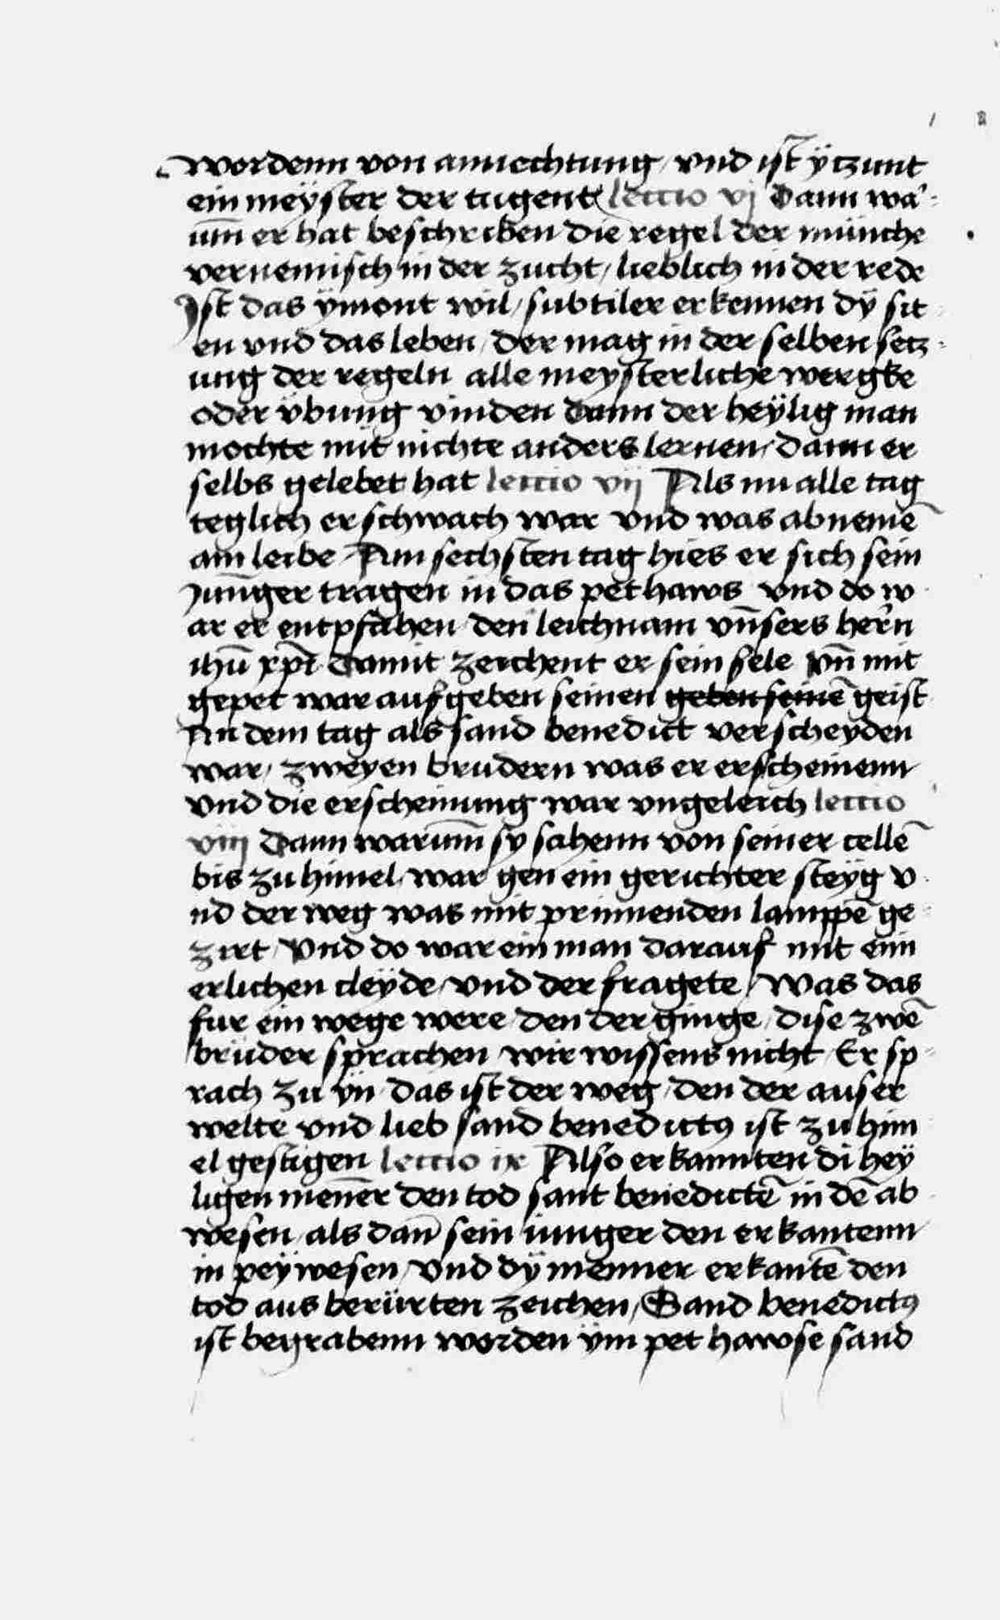 wordenn von annechtung / vnd ist ÿtzunt
ein meÿster der tugent lectio vj Dann wa-
um̄ er hat beschriben die regel der münche
vernemisch in der zucht / lieblich in der rede
Ist das ÿmont wil / subtiler erkennen dÿ sit
en vnd das leben / der mag in der selben setz-
ung der regeln alle meysterliche wergke
oder vbung vinden Dann der heÿlig man
mochte mit nichte anders lernen / dann er
selbs gelebet hat lectio vij Als nu alle tag
teglich er schwach war vnd was abnemē
am leibe Am sechsten tag hies er sich sein
Jun̄ger tragen in das pethaws vnd do w
ar er entpfahen den leichnam vn̄sers her̄n
ihū xp̄i Damit zeichent er sein sele vn̄ mit
gepet war aufgeben seinen geben seinē geist
An dem tag als sand benedict verscheyden
war / zweyen brudern was er erscheinenn
vnd die erscheinung war vngeleich lectio
viij Dann warum̄ sy sahenn von seiner cellē
bis zu himel war gen ein gerichter steÿg v
nd der weg was mit prinnenden lamppē ge
zirt / Vnd do war ein man darauf mit eim
erlichen cleÿde / vnd der fragete / Was das
fur ein wege were / den der ginge / dise zwē
brüder sprachen wir wissens nicht / Er sp-
rach zu ÿn / das ist der weg / den der auser
welte vnd lieb sand benedictꝰ ist zu him
el gestigen lectio ix Also erkannten di hey
ligen men̄er den tod sant benedictē in dē ab
wesen / als dan̄ sein iunger den erkantenn
in peÿwesen / Vnd dÿ menner erkantē den
tod aus berürten zeichen / Sand benedictꝰ
ist begrabenn worden ÿm pet hawse sand